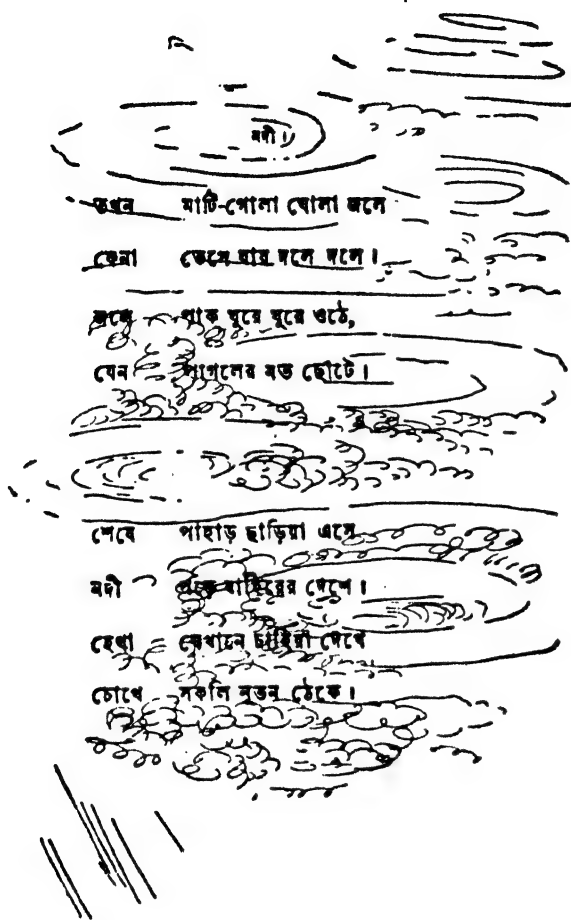 নদী।
তখন মাটি-গোলা ঘোলা জলে
ফেনা ভেসে যায় দলে দলে।
জলে পাক ঘুরে ঘুরে ওঠে,
যেন পাগলের মত ছোটে।
শেষে পাহাড় ছাড়িয়া এসে
নদী পড়ে বাহিরের দেশে।
হেথা যেখানে চাহিয়া দেখে
চোখে সকলি নূতন ঠেকে।